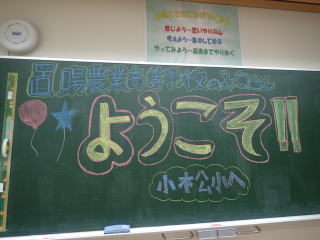 感じよう…思いやりの心
考えよう…集中して学ぶ
やってみよう…最後までやりぬく
置賜農業高等学校のみなさん
ようこそ!!
小松小へ